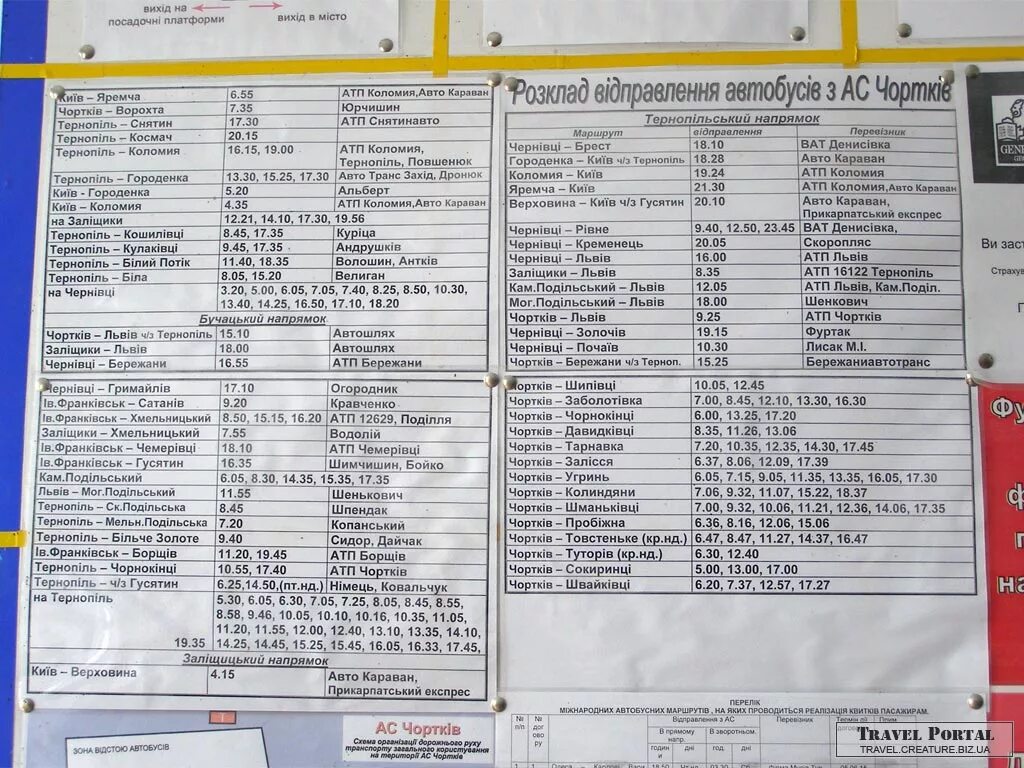 вихід на посадочні платформи
вихід в місто
Київ – Яремча 6.55 АТП Коломия,Авто Караван
Чортків – Ворохта 7.35 Юрчишин
Тернопіль – Снятин 17.30 АТП Снятинавто
Тернопіль – Космач 20.15
Тернопіль – Коломия 16.15, 19.00 АТП Коломия,
Тернопіль, Повшенюк
Тернопіль – Городенка 13.30, 15.25, 17.30 Авто Транс Захід, Дронюк
Київ - Городенка 5.20 Альберт
Київ – Коломия 4.35 АТП Коломия,Авто Караван
на Заліщики 12.21, 14.10, 17.30, 19.56
Тернопіль – Кошилівці 8.45, 17.35 Куріца
Тернопіль – Кулаківці 9.45, 17.35 Андрушків
Тернопіль – Білий Потік 11.40, 18.35 Волошин, Антків
Тернопіль – Біла 8.05, 15.20 Велиган
на Чернівці 3.20, 5.00, 6.05, 7.05, 7.40, 8.25, 8.50, 10.30,
13.40, 14.25, 16.50, 17.10, 18.20
Бучацький напрямок
Чортків – Львів ч/з Тернопіль 15.10 Автошлях
Заліщики – Львів 18.00 Автошлях
Чернівці – Бережани 16.55 АТП Бережани
Чернівці – Гримайлів 17.10 Огородник
Ів.Франківськ – Сатанів 9.20 Кравченко
Ів.Франківськ – Хмельницький 8.50, 15.15, 16.20 АТП 12629, Поділля
Заліщики – Хмельницький 7.55 Водолій
Ів.Франківськ – Чемерівці 18.10 АТП Чемерівці
Ів.Франківськ – Гусятин 16.35 Шимчишин, Бойко
Кам.Подільський 6.05, 8.30, 14.35, 15.35, 17.35
Львів – Мог.Подільський 11.55 Шенькович
Тернопіль – Ск.Подільська 8.45 Шпендак
Тернопіль – Мельн.Подільська 7.20 Копанський
Тернопіль – Більче Золоте 9.40 Сидор, Дайчак
Ів.Франківськ – Борщів 11.20, 19.45 АТП Борщів
Тернопіль – Чорнокінці 10.55, 17.40 АТП Чортків
Тернопіль – ч/з Гусятин 6.25,14.50,(пт.нд.) Німець, Ковальчук
на Тернопіль 5.30, 6.05, 6.30, 7.05, 7.25, 8.05, 8.45, 8.55,
8.58, 9.46, 10.05, 10.10, 10.16, 10.35, 11.05,
11.20, 11.55, 12.00, 12.40, 13.10, 13.35, 14.10,
19.35 14.25, 14.45, 15.25, 15.45, 16.05, 16.33, 17.45,
Заліщицький напрямок
Київ – Верховина 4.15 Авто Караван,
Прикарпатський експрес
Розклад відправлення автобусів з АС Чортків
Тернопільський напрямок
Маршрут відправлення Перевізник
Чернівці – Брест 18.10 ВАТ Денисівка
Городенка – Київ ч/з Тернопіль 18.28 Авто Караван
Коломия – Київ 19.24 АТП Коломия
Яремча – Київ 21.30 АТП Коломия,Авто Караван
Верховина – Київ ч/з Гусятин 20.10 Авто Караван,
Прикарпатський експрес
Чернівці – Рівне 9.40, 12.50, 23.45 ВАТ Денисівка,
Чернівці – Кременець 20.05 Скоропляс
Чернівці – Львів 16.00 АТП Львів
Заліщики – Львів 8.35 АТП 16122 Тернопіль
Кам.Подільський – Львів 12.05 АТП Львів, Кам.Поділ.
Мог.Подільський – Львів 18.00 Шенкович
Чортків – Львів 9.25 АТП Чортків
Чернівці – Золочів 19.15 Фуртак
Чернівці – Почаїв 10.30 Лисак М.І.
Чортків – Бережани ч/з Терноп. 15.25 Бережаниавтотранс
Чортків – Шипівці 10.05, 12.45
Чортків – Заболотівка 7.00, 8.45, 12.10, 13.30, 16.30
Чортків – Чорнокінці 6.00, 13.25, 17.20
Чортків – Давидківці 8.35, 11.26, 13.06
Чортків – Тарнавка 7.20, 10.35, 12.35, 14.30, 17.45
Чортків – Залісся 6.37, 8.06, 12.09, 17.39
Чортків – Угринь 6.05, 7.15, 9.05, 11.35, 13.35, 16.05, 17.30
Чортків – Колиндяни 7.06, 9.32, 11.07, 15.22, 18.37
Чортків – Шманьківці 7.00, 9.32, 10.06, 11.21, 12.36, 14.06, 17.35
Чортків – Пробіжна 6.36, 8.16, 12.06, 15.06
Чортків – Товстеньке (кр.нд.) 6.47, 8.47, 11.27, 14.37, 16.47
Чортків – Туторів (кр.нд.) 6.30, 12.40
Чортків – Сокиринці 5.00, 13.00, 17.00
Чортків – Швайківці 6.20, 7.37, 12.57, 17.27
ЗОНА ВІДСТОЮ АВТОБУСІВ
АС Чортків
Схема організації дорожнього руху
транспорту загального користування
на території АС Чортків
ПЕРЕЛІК
МІЖНАРОДНИХ АВТОБУСНИХ МАРШРУТІВ , НА ЯКИХ ПРОВОДИТЬСЯ РЕАЛІЗАЦІЯ КВИТКІВ ПАСАЖИРАМ.
№ п/п
№ договору
Відправлення з АС
Перевізник
В прямому напр.
В зворотньом.
годин
дні
Ви заст
TRAVEL PORTAL
TRAVEL.CREATURE.BIZ.UA